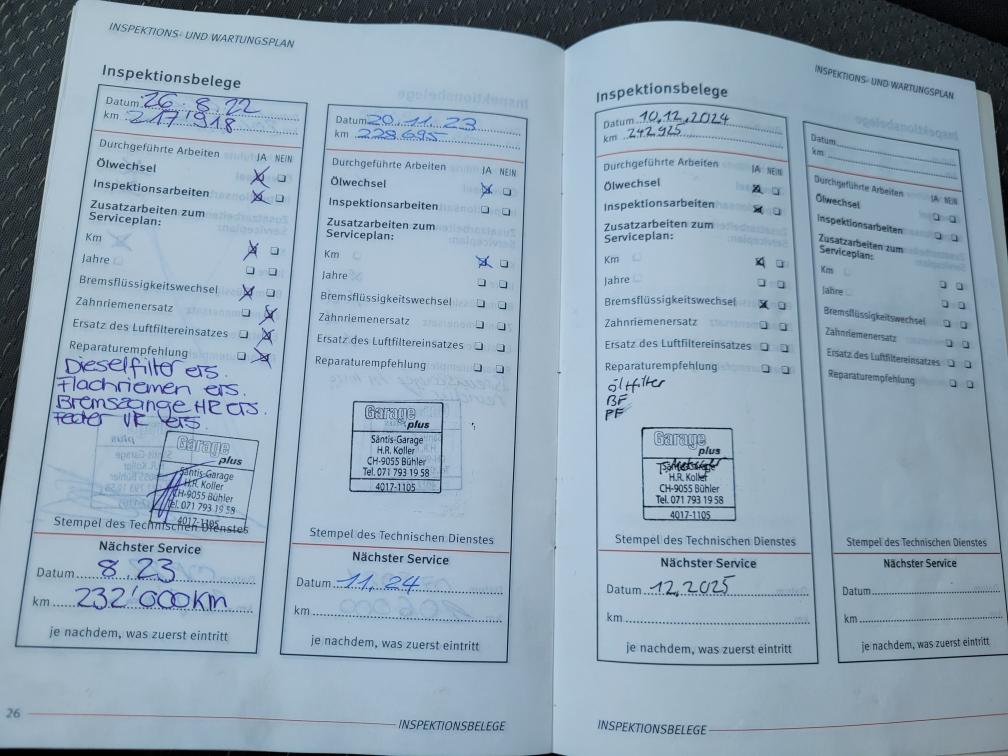 INSPEKTIONS- UND WARTUNGSPLAN
Inspektionsbelege
Datum 26.8.22
km 217'918
Durchgeführte Arbeiten JA NEIN
Ölwechsel
Inspektionsarbeiten
Zusatzarbeiten zum
Serviceplan:
Km
Jahre
Bremsflüssigkeitswechsel
Zahnriemenersatz
Ersatz des Luftfiltereinsatzes
Reparaturempfehlung
Dieselfilter ers.
Flachriemen ers.
Bremszange HR ers.
Feder VR ers.
Garage
plus
Säntis-Garage
H.R. Koller
CH-9055 Bühler
Tel. 071 793 19 58
4017-1105
Stempel des Technischen Dienstes
Nächster Service
Datum 8.23
km 232'000km
je nachdem, was zuerst eintritt
Datum 20.11.23
km 228695
Durchgeführte Arbeiten JA NEIN
Ölwechsel
Inspektionsarbeiten
Zusatzarbeiten zum
Serviceplan:
Km
Jahre
Bremsflüssigkeitswechsel
Zahnriemenersatz
Ersatz des Luftfiltereinsatzes
Reparaturempfehlung
Garage
plus
Säntis-Garage
H.R. Koller
CH-9055 Bühler
Tel. 071 793 19 58
4017-1105
Stempel des Technischen Dienstes
Nächster Service
Datum 11,24
km
je nachdem, was zuerst eintritt
26
INSPEKTIONSBELEGE
INSPEKTIONS- UND WARTUNGSPLAN
Inspektionsbelege
Datum 10,12,2024
km 242925
Durchgeführte Arbeiten JA NEIN
Ölwechsel
Inspektionsarbeiten
Zusatzarbeiten zum
Serviceplan:
Km
Jahre
Bremsflüssigkeitswechsel
Zahnriemenersatz
Ersatz des Luftfiltereinsatzes
Reparaturempfehlung
BF
PF
Garage
plus
Säntis-Garage
H.R. Koller
CH-9055 Bühler
Tel. 071 793 19 58
4017-1105
Stempel des Technischen Dienstes
Nächster Service
Datum 12,2025
km
je nachdem, was zuerst eintritt
Datum
km
Durchgeführte Arbeiten JA NEIN
Ölwechsel
Inspektionsarbeiten
Zusatzarbeiten zum
Serviceplan:
Km
Jahre
Bremsflüssigkeitswechsel
Zahnriemenersatz
Ersatz des Luftfiltereinsatzes
Reparaturempfehlung
Stempel des Technischen Dienstes
Nächster Service
Datum
km
je nachdem, was zuerst eintritt
INSPEKTIONSBELEGE